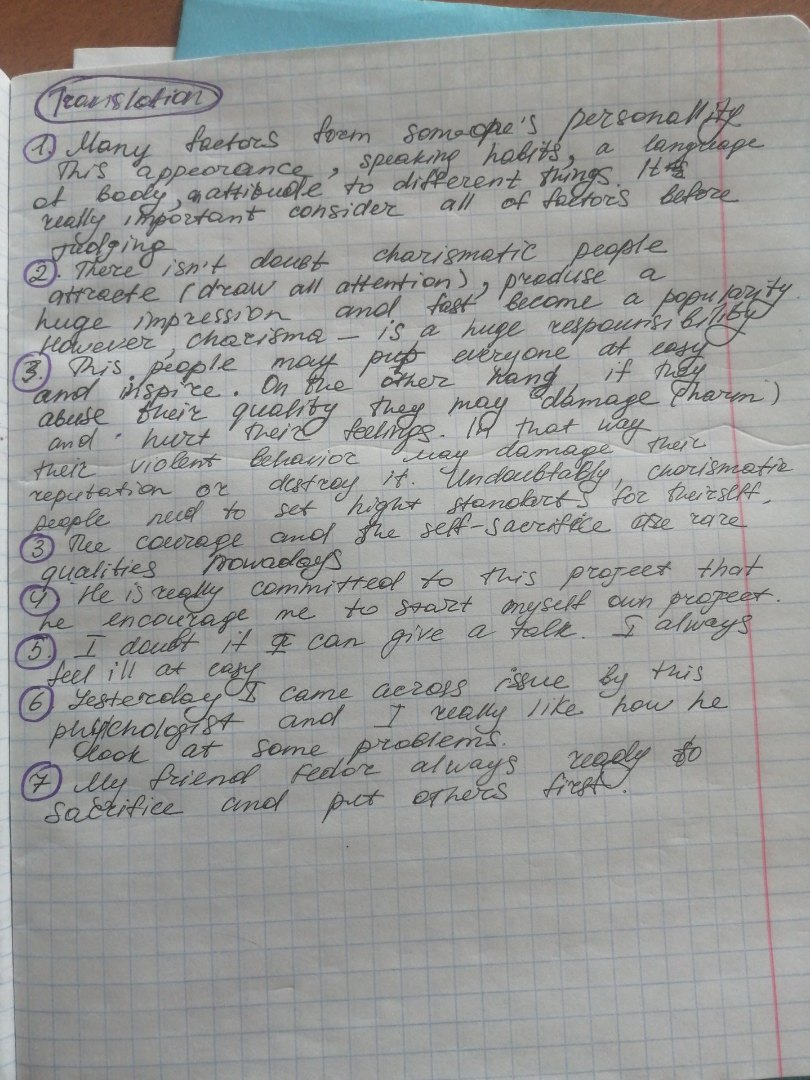 Translation
1. Many factors form someone's personality
This appearance, speaking habits, a language
of body, attitude to different things. It is
really important consider all of factors before
judging
2. There isn't doubt charismatic people
attracte (draw all attention), produse a
huge impression and fast become a popularity.
However, charisma – is a huge responsibility
3. This people may put everyone at easy
and inspire. On the other hang, if they
abuse their quality they may damage (harm)
and hurt their feelings. In that way
their violent behavior may damage their
reputation or destroy it. Undoubtably, charismatic
people need to set hight standorts for theirself.
3 The courage and the self-sacrifice are rare
qualities nowadays
4 He is really committed to this project that
he encourage me to start myself own project.
5. I doubt if I can give a talk. I always
feel ill at easy
6 Yesterday I came across issue by this
phychologist and I really like how he
look at some problems.
7 My friend Fedor always ready to
sacrifice and put others first.